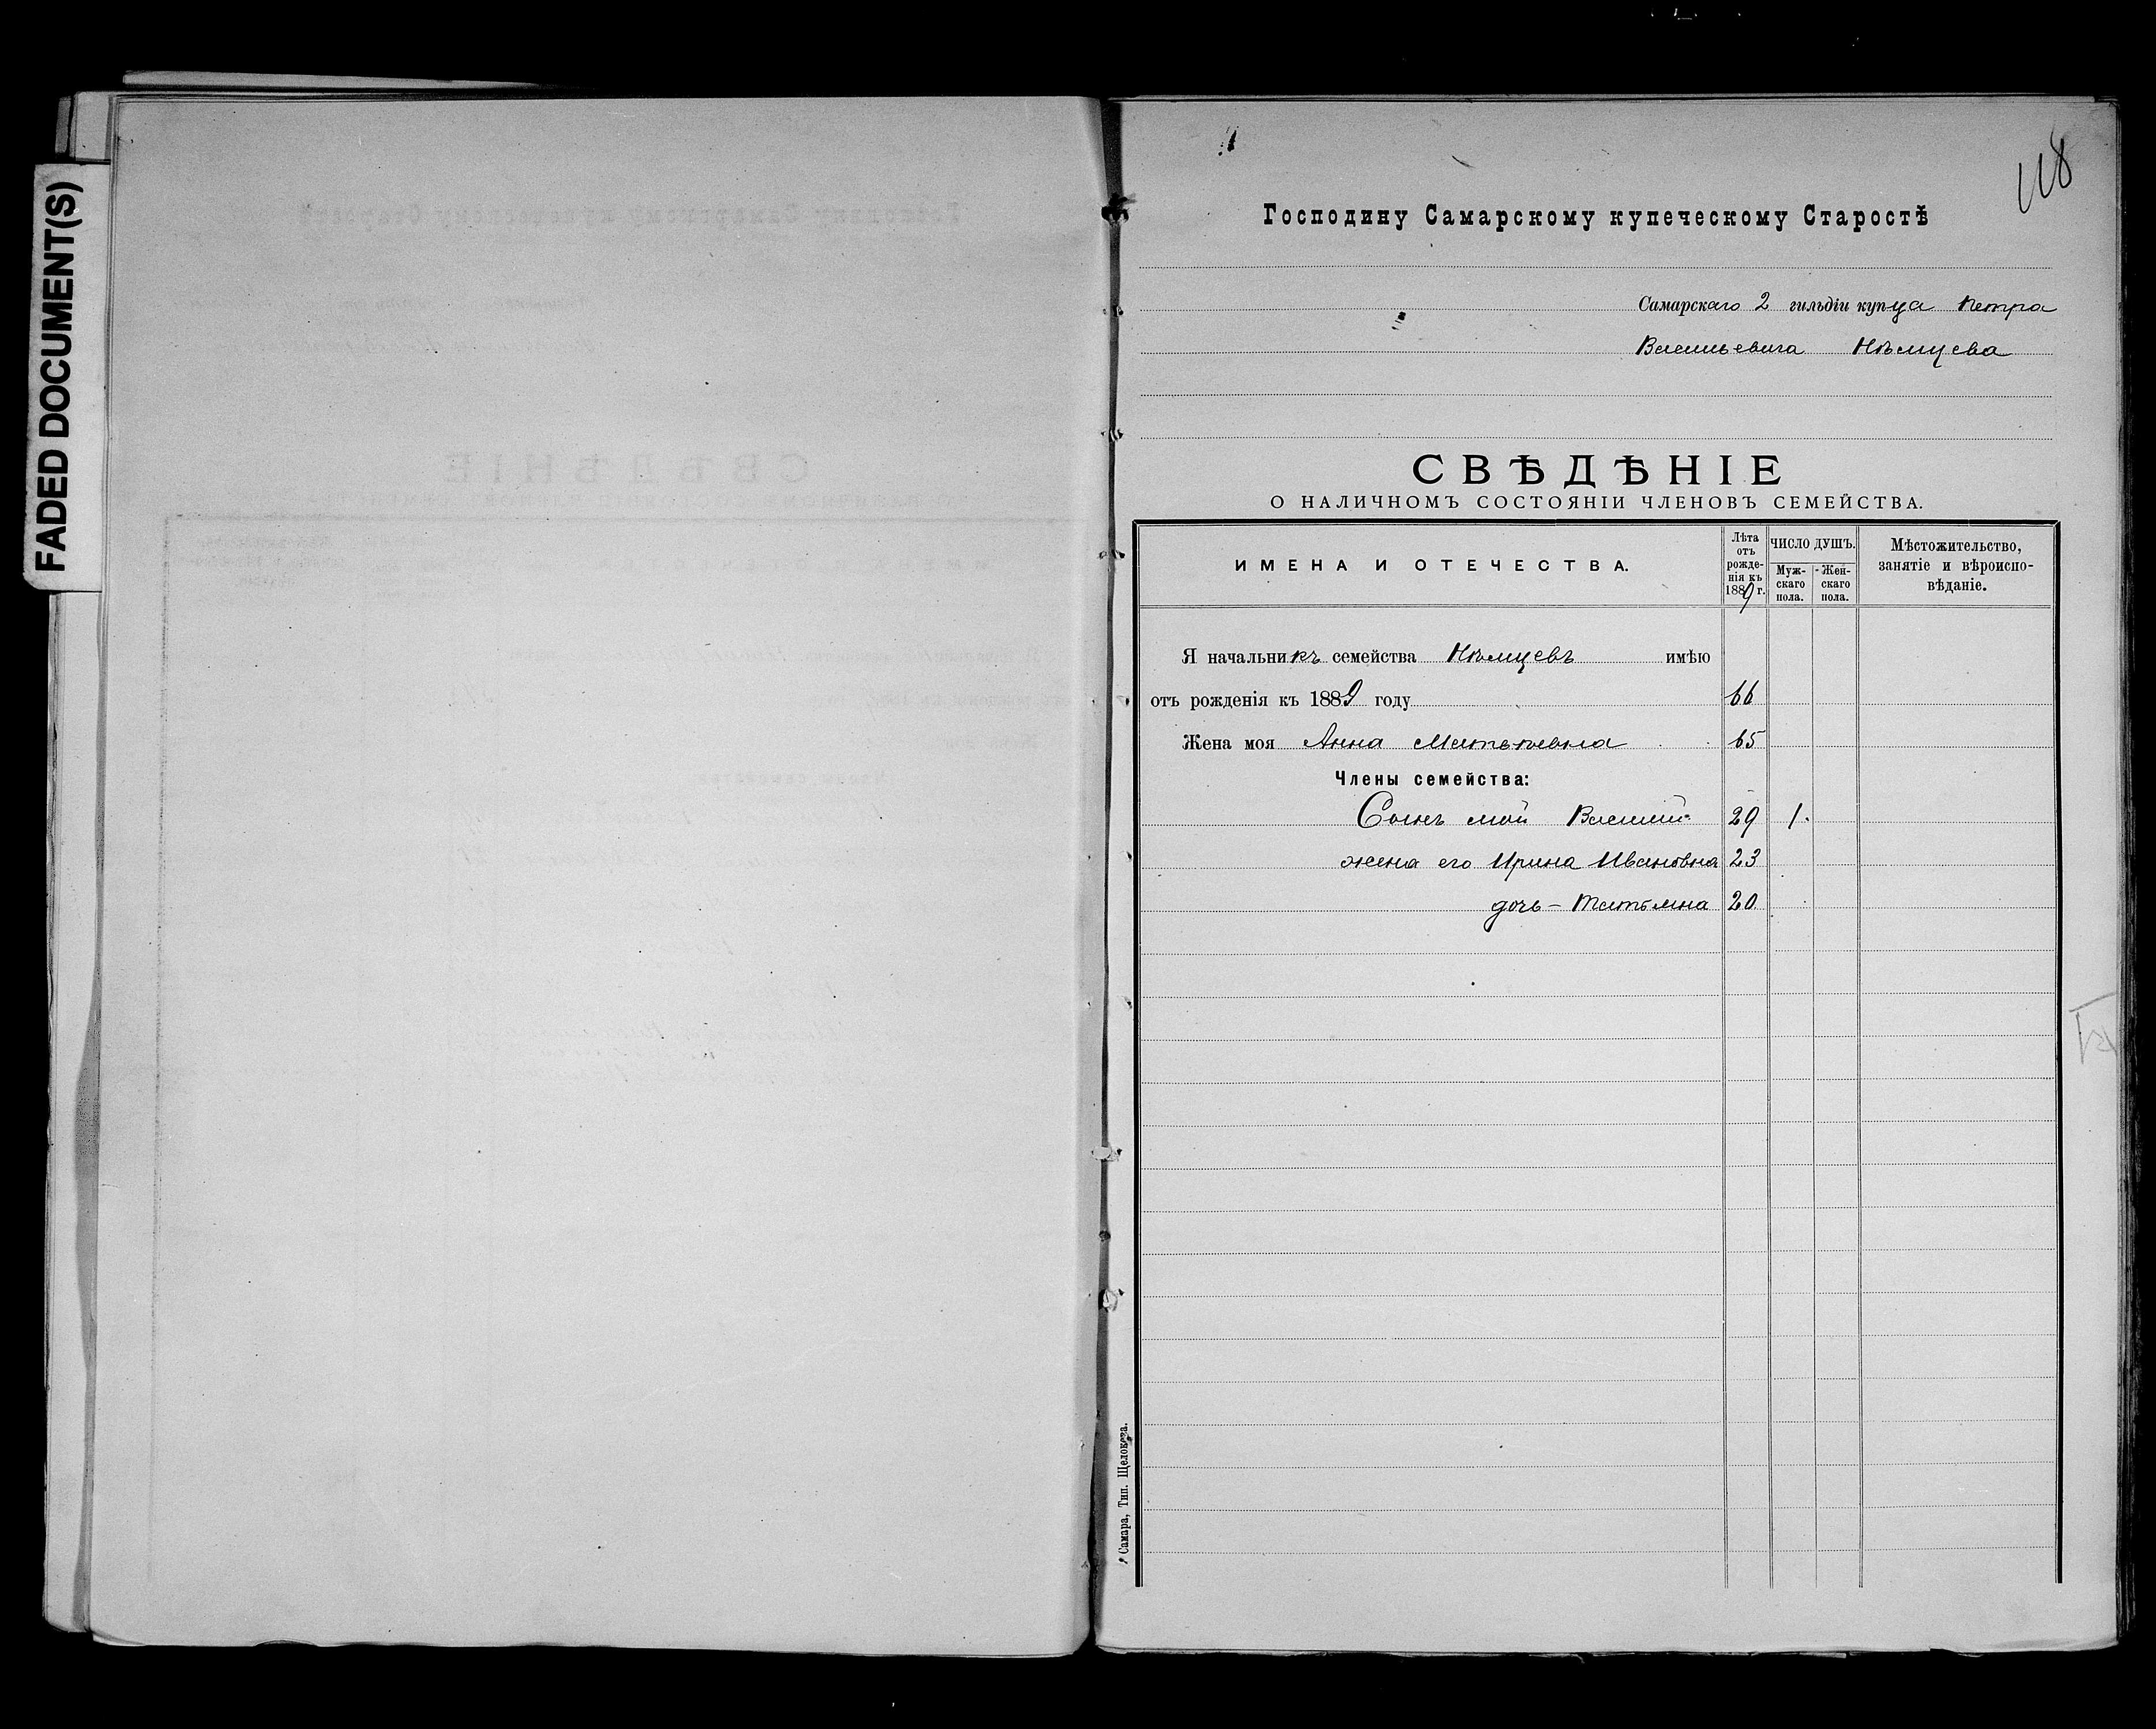 FADED DOCUMENT(S)
118
Господину Самарскому купеческому Старостѣ
Самарскаго 2 гильдіи купца Петра
Васильевича Нѣмцева
СВѢДѢНІЕ
О НАЛИЧНОМЪ СОСТОЯНІИ ЧЛЕНОВЪ СЕМЕЙСТВА.
ИМЕНА И ОТЕЧЕСТВА.
Лѣта
отъ
рожде-
нія къ
1889 г.
ЧИСЛО ДУШЪ.
Муж-
скаго
пола.
Жен-
скаго
пола.
Мѣстожительство,
занятіе и вѣроиспо-
вѣданіе.
Я начальникъ семейства Нѣмцевъ имѣю
отъ рожденія къ 1889 году 66
Жена моя Анна Матвѣевна 65
Члены семейства:
Сынъ мой Василій 29 1.
жена его Ирина Ивановна 23
дочь – Татьяна 20
Самара, Тип. Щелокова.